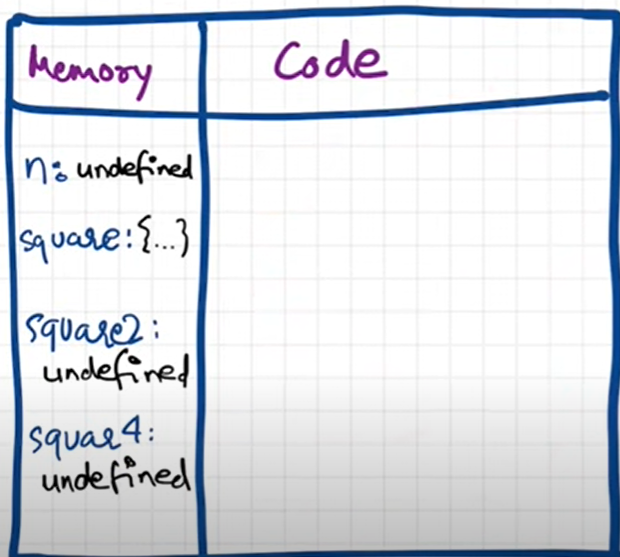 Memory
Code
n: undefined
square: {...}
square2:
undefined
squar4:
undefined